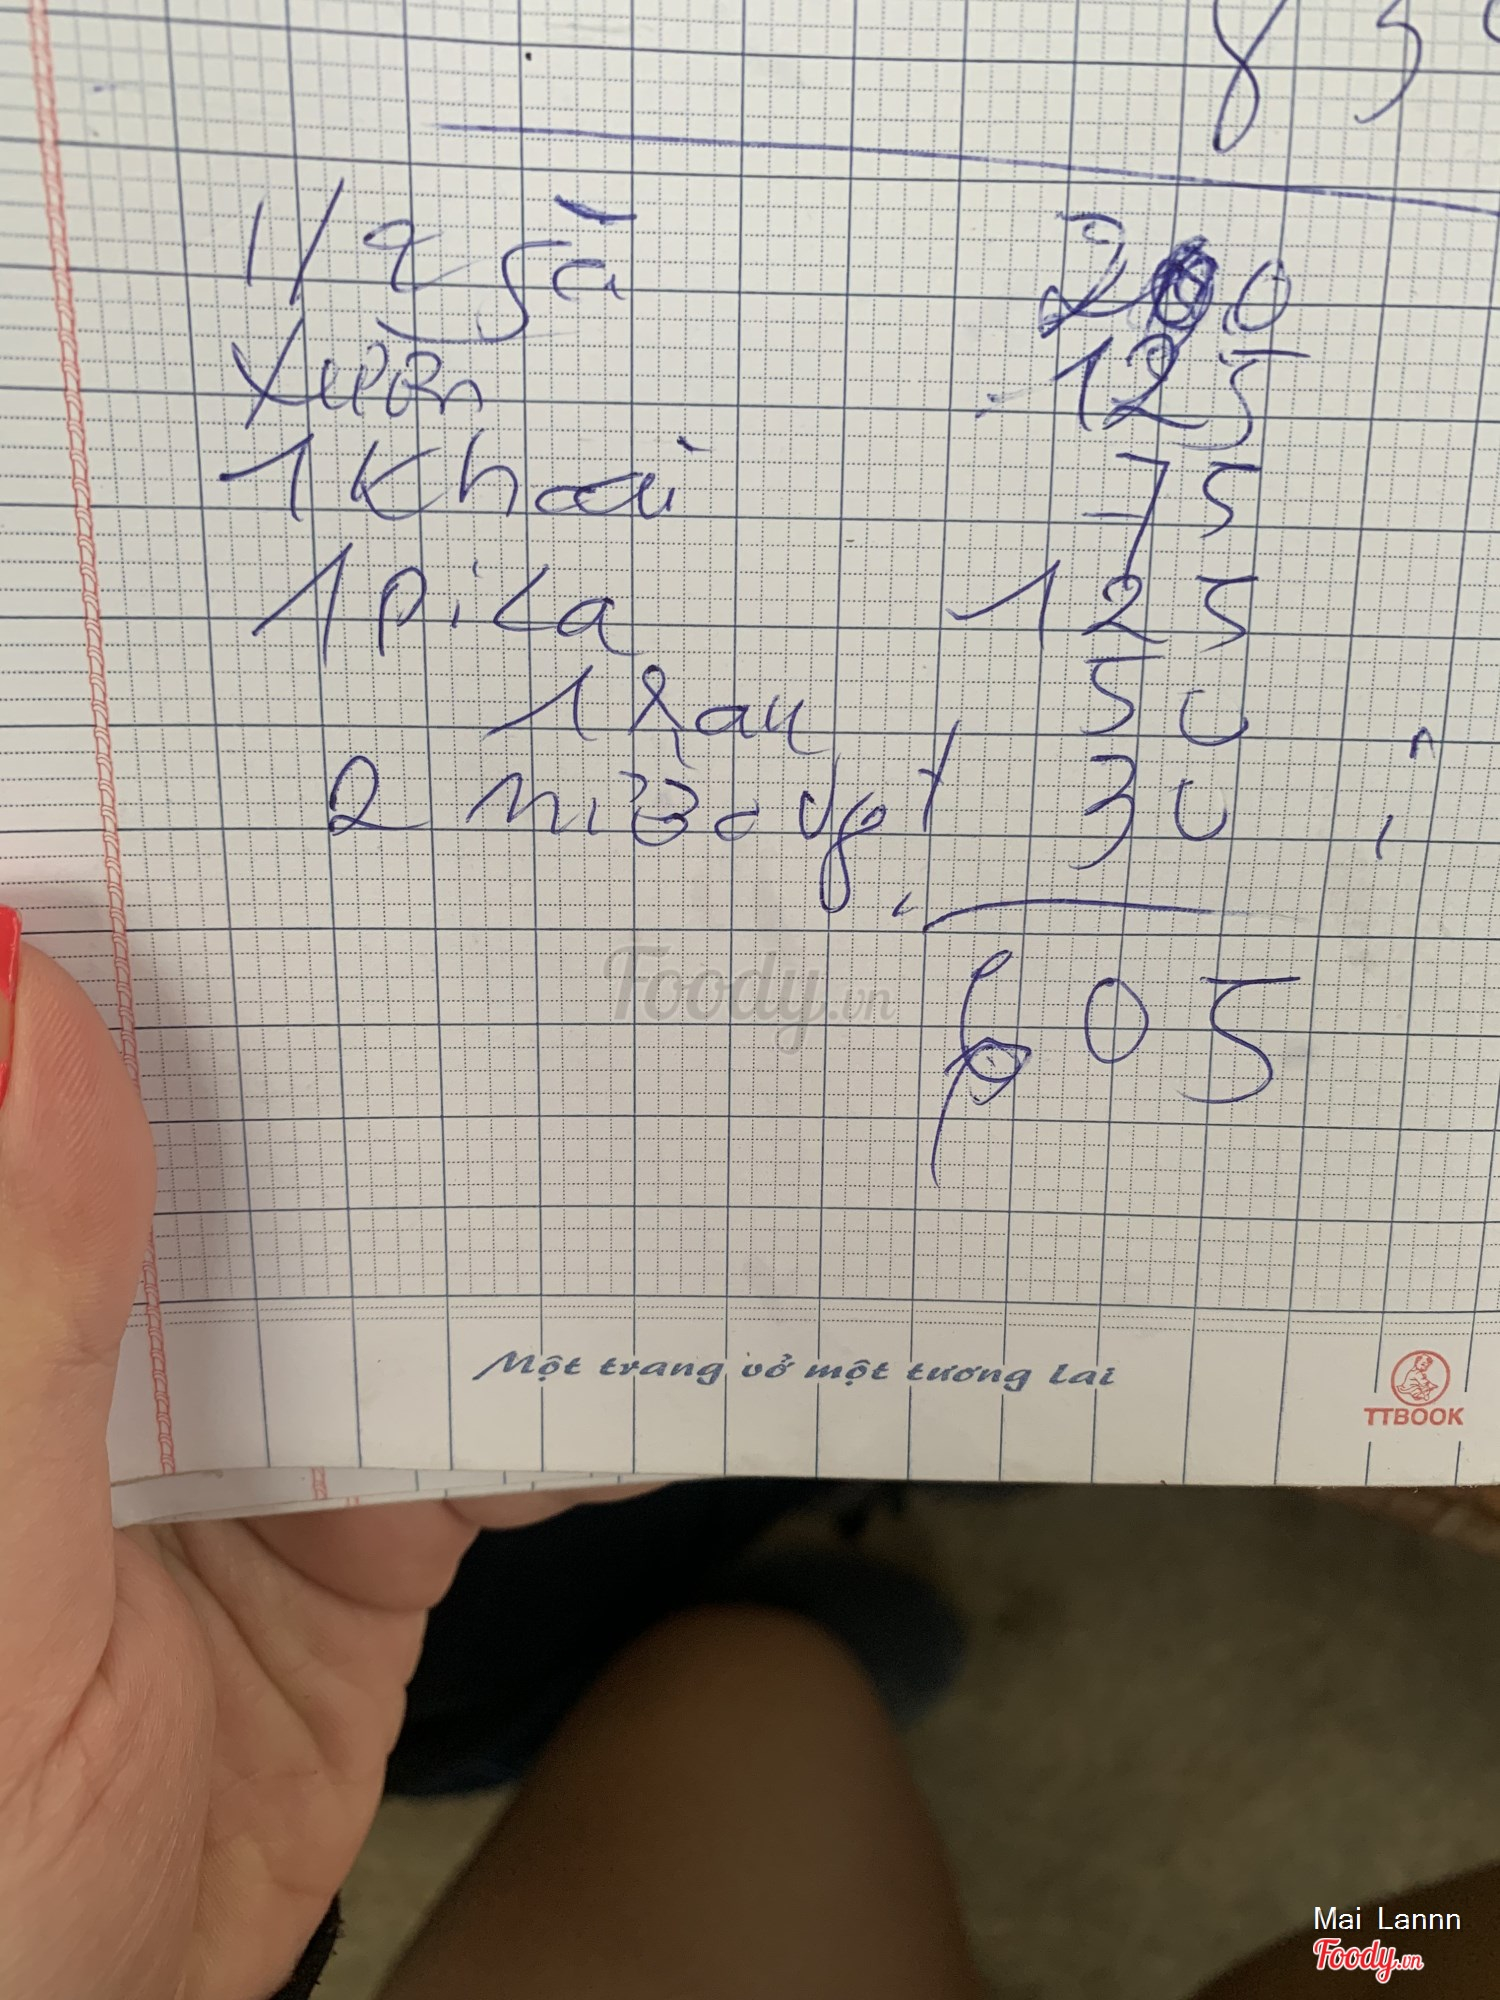 1/2 gà 200
Xườn 125
1 Khoai 75
1 pica 125
1 Rau 50
2 mì 30
605
Foody.vn
Một trang vở một tương lai
TTBOOK
Mai Lannn
Foody.vn